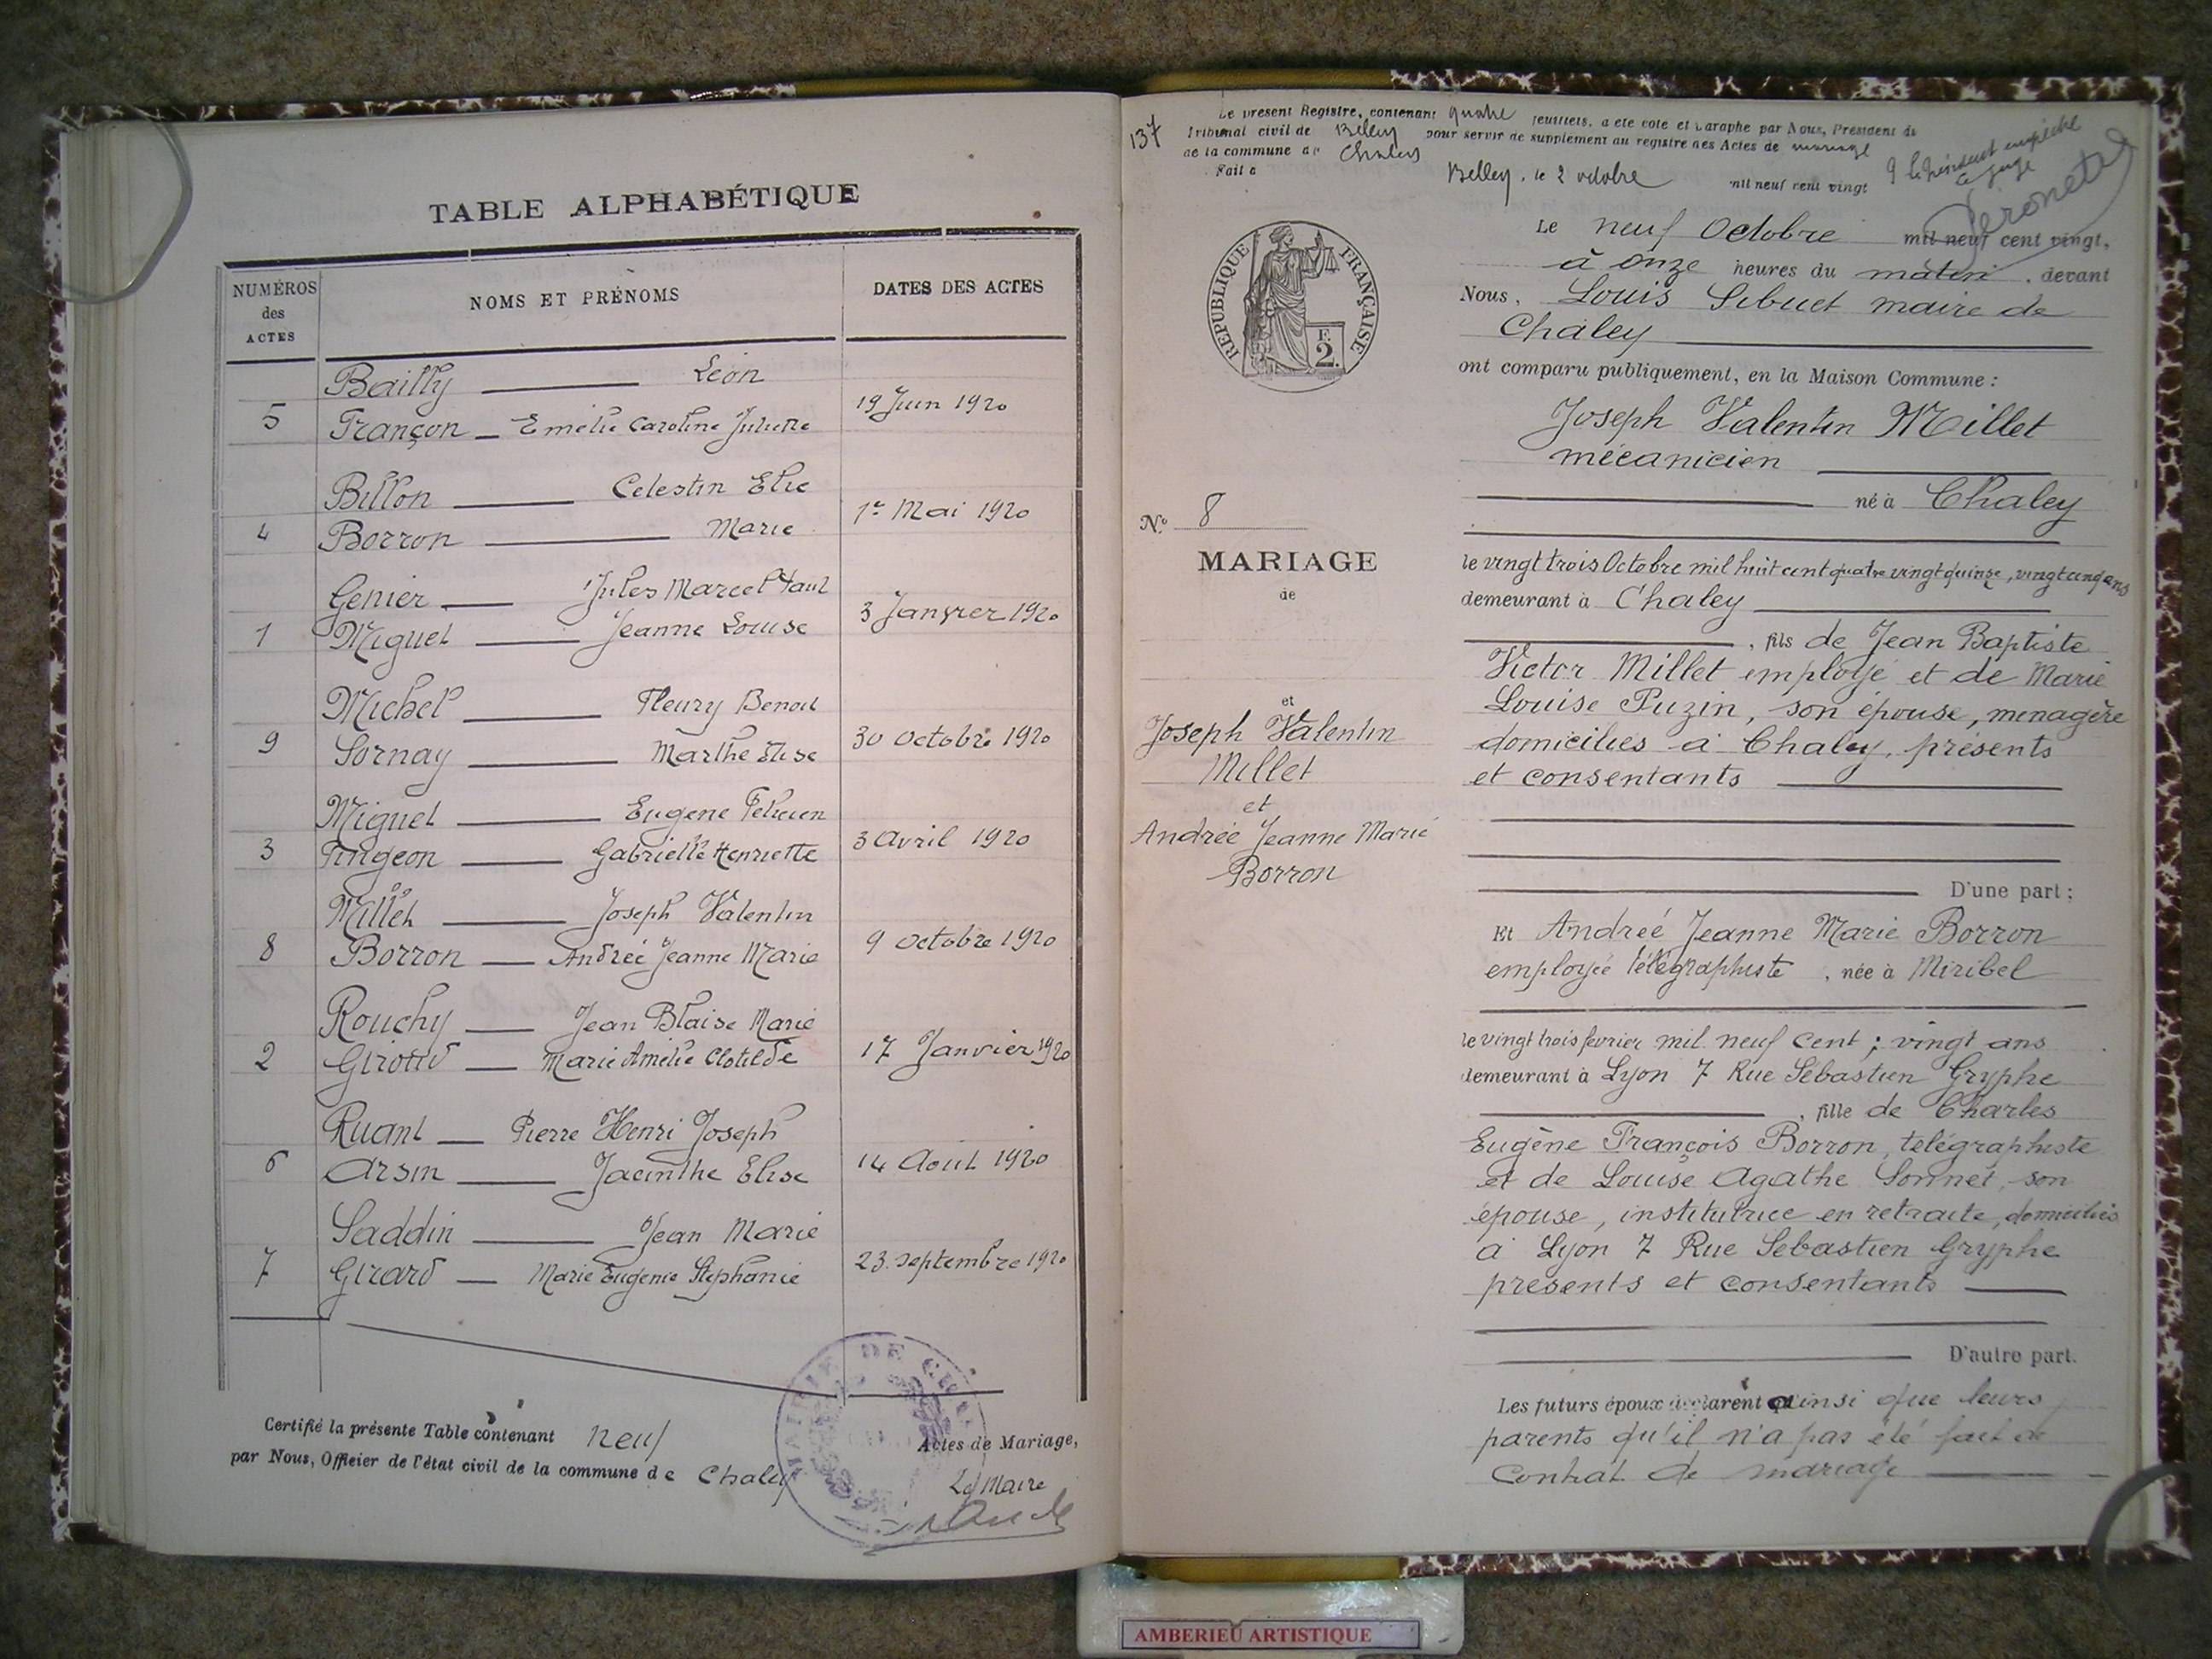 TABLE ALPHABÉTIQUE
NUMÉROS des ACTES
NOMS ET PRÉNOMS
DATES DES ACTES
Bailly Léon
5 Françon Emélie Caroline Juliette 19 Juin 1920
Billon Celestin Elie
4 Borron Marie 1er Mai 1920
Genier Jules Marcel Paul
1 Miguet Jeanne Louise 3 Janvier 1920
Michel Fleury Benoit
9 Sornay Marthe Elise 30 Octobre 1920
Miguet Eugene Felicien
3 Tingeon Gabrielle Henriette 3 Avril 1920
Millet Joseph Valentin
8 Borron Andrée Jeanne Marie 9 Octobre 1920
Rouchy Jean Blaise Marie
2 Giroud Marie Amélie Clotilde 17 Janvier 1920
Ruant Pierre Henri Joseph
6 Arsin Jacinthe Elise 14 Aout 1920
Saddin Jean Marie
7 Girard Marie Eugenie Stephanie 23 Septembre 1920
Certifié la présente Table contenant neuf Actes de Mariage,
par Nous, Officier de l'état civil de la commune de Chaley
Le Maire
MAIRIE DE
137
Le présent Registre, contenant quatre feuillets, a été coté et paraphé par Nous, Président du
Tribunal civil de Belley pour servir de supplément au registre des Actes de mariage
de la commune de Chaley
Fait à Belley, le 2 octobre mil neuf cent vingt
P. le Président empêché
le juge
REPUBLIQUE FRANÇAISE
F.
2.
Le neuf Octobre mil neuf cent vingt,
à onze heures du matin, devant
Nous, Louis Sibuet maire de
Chaley
ont comparu publiquement, en la Maison Commune :
Joseph Valentin Millet
mécanicien
né à Chaley
le vingt trois Octobre mil huit cent quatre vingt quinze, vingt cinq ans
demeurant à Chaley
, fils de Jean Baptiste
Victor Millet employé et de Marie
Louise Puzin, son épouse, menagère
domiciliés à Chaley, présents
et consentants
D'une part ;
No 8
MARIAGE
de
et
Joseph Valentin
Millet
et
Andrée Jeanne Marie
Borron
Et Andreé Jeanne Marie Borron
employée télégraphiste, née à Miribel
le vingt trois fevrier mil neuf cent ; vingt ans
demeurant à Lyon 7 Rue Sébastien Gryphe
, fille de Charles
Eugène François Borron, telégraphiste
et de Louise Agathe Sonnet, son
épouse, institutrice en retraite, domiciliés
à Lyon 7 Rue Sébastien Gryphe
présents et consentants
D'autre part.
Les futurs époux déclarent ainsi que leurs
parents qu'il n'a pas été fait de
Contrat de mariage
AMBERIEU ARTISTIQUE